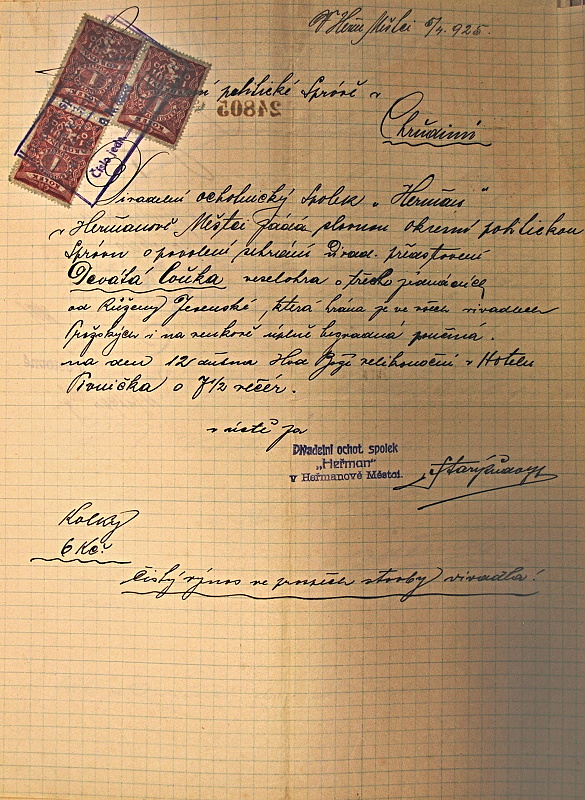 V Heřm. Městci 5/4. 925.
politické Správě v
24805
Chrudimi
Číslo jedn.
Divadelní ochotnický Spolek „Heřman"
v Heřmanově Městci žádá slavnou okresní politickou
Správu o povolení sehrání divad. představení
Devátá louka veselohra o třech jednáních
od Růženy Jesenské, která hrána je ve všech divadlech
Pražských i na venkově úplně bezvadná poučná.
na den 12 dubna Hod Boží velikonoční v Hotelu
o 7 1/2 večer.
v úctě
Divadelní ochot. spolek
„Heřman"
v Heřmanově Městci.
Kolky
6 Kč.
čistý výnos ve prospěch stavby divadla!